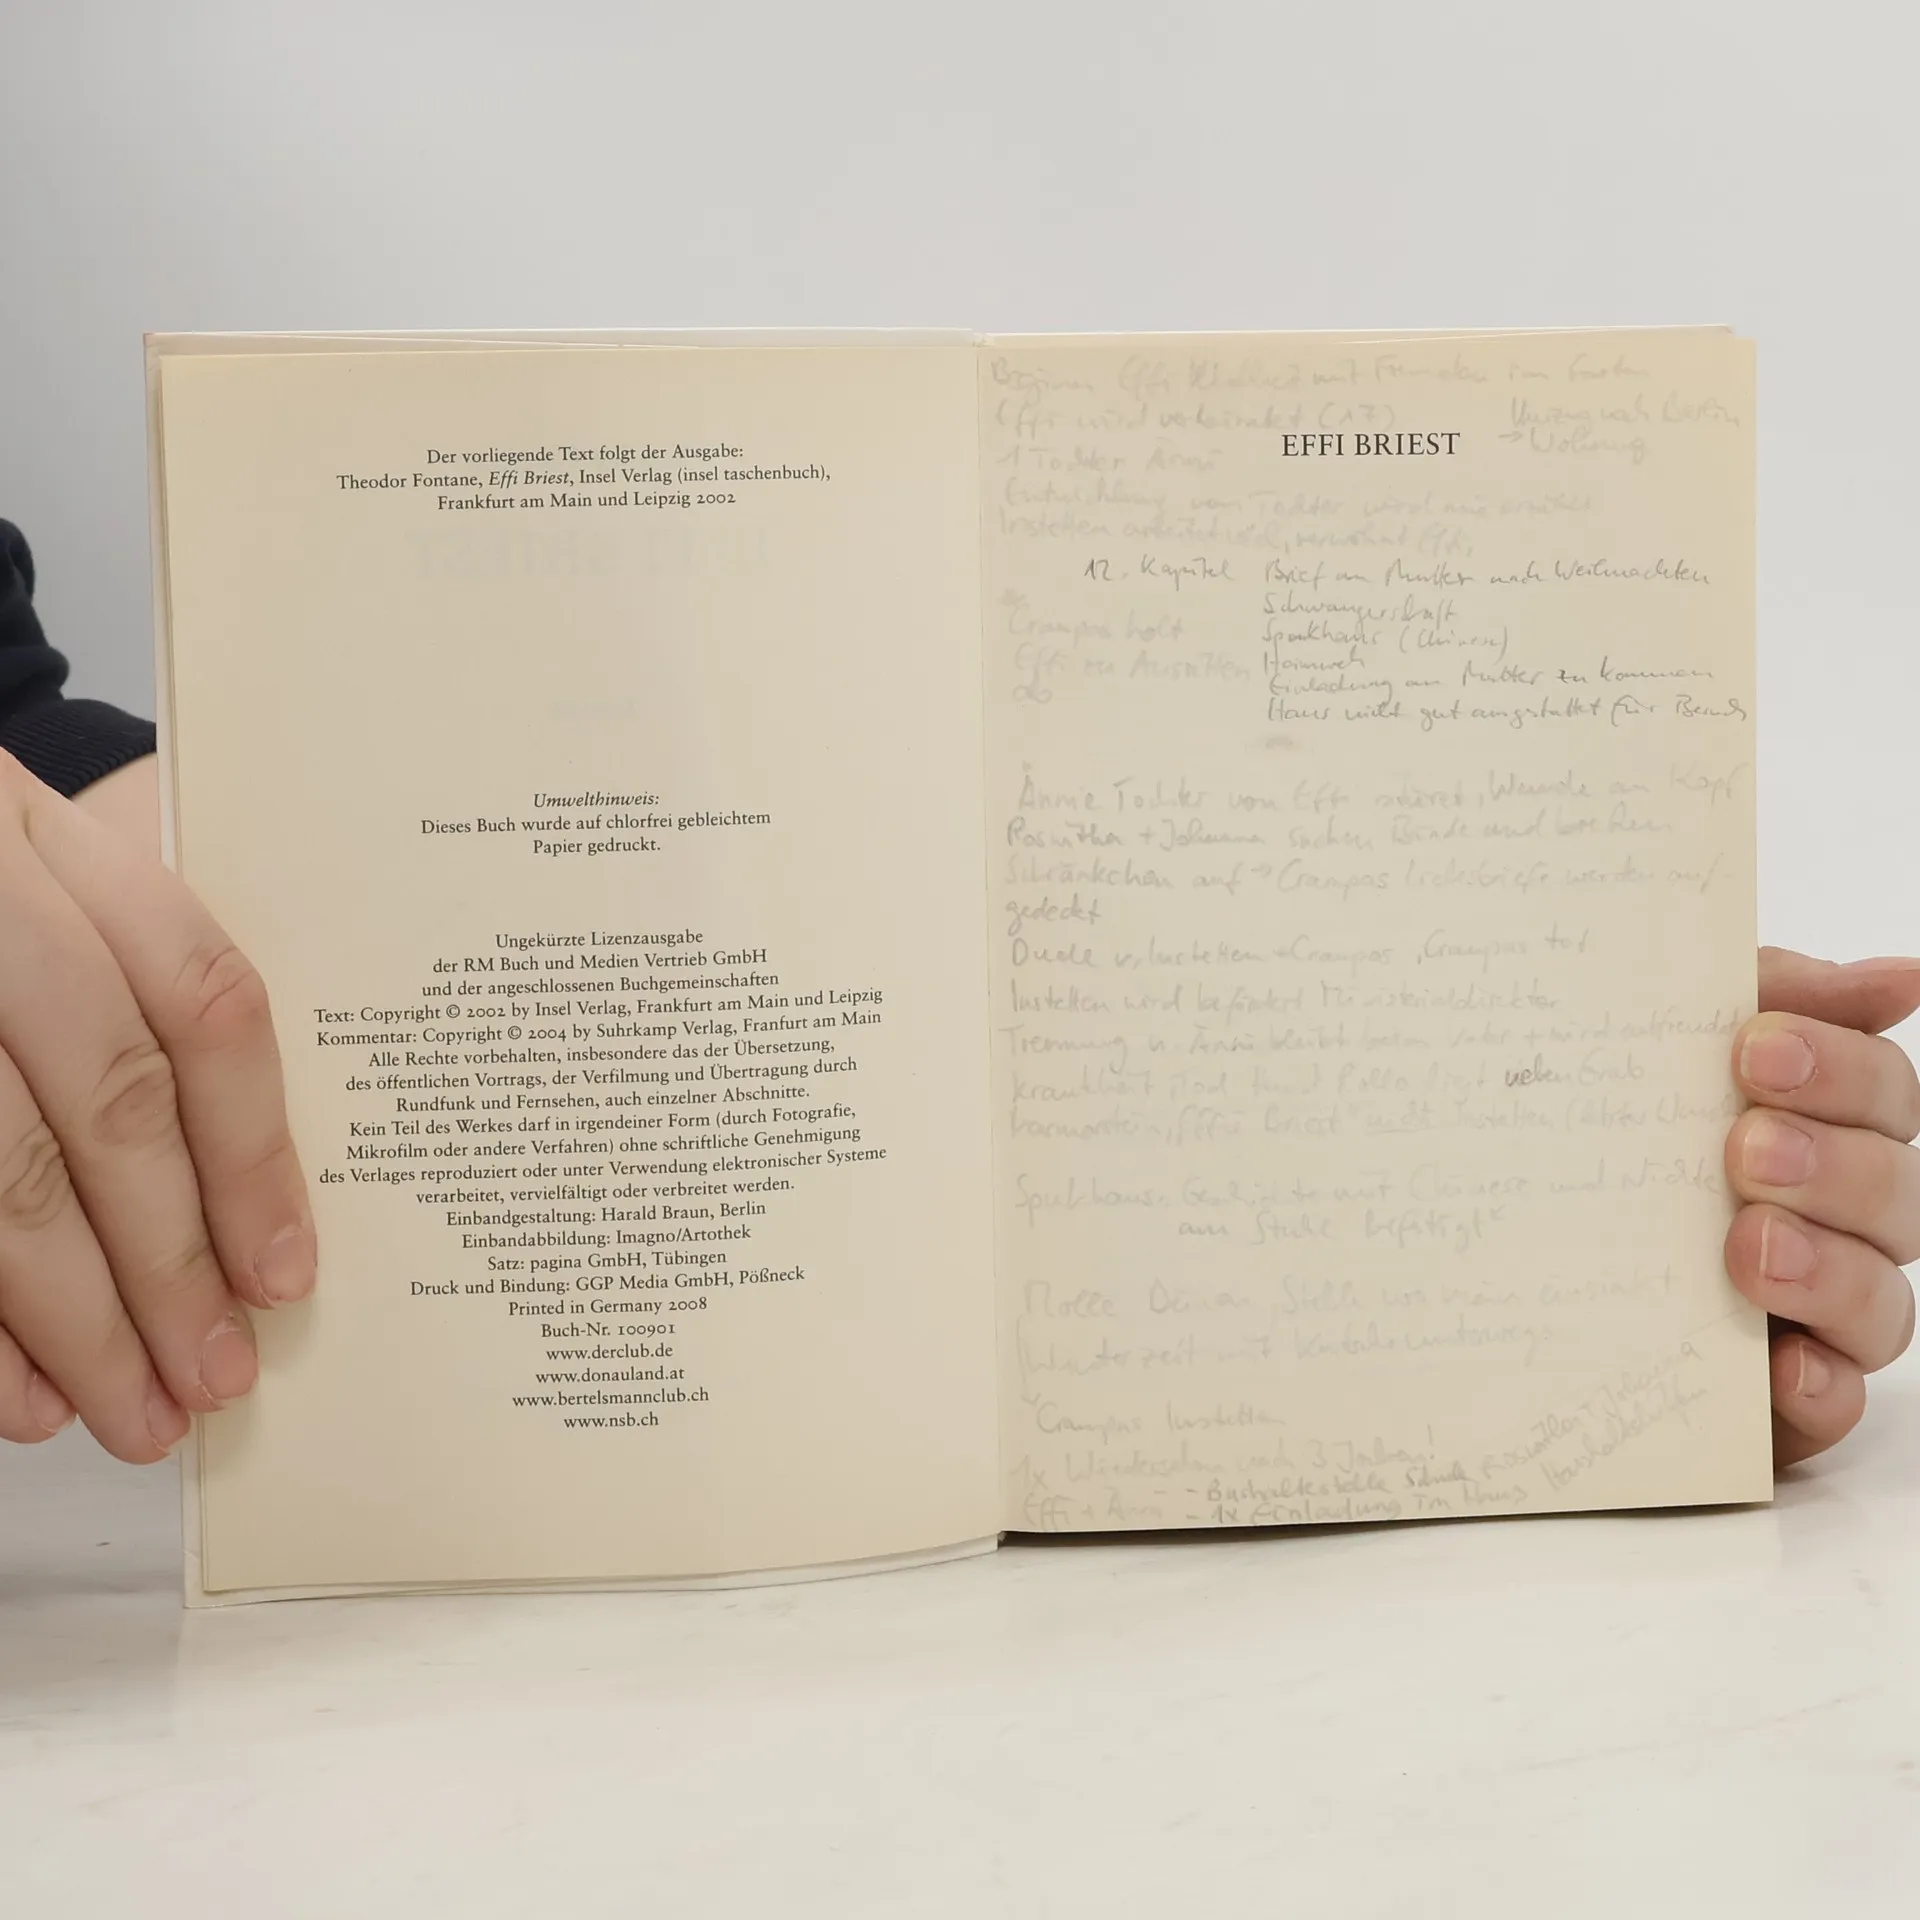 Der vorliegende Text folgt der Ausgabe:
Theodor Fontane, Effi Briest, Insel Verlag (insel taschenbuch),
Frankfurt am Main und Leipzig 2002
Umwelthinweis:
Dieses Buch wurde auf chlorfrei gebleichtem
Papier gedruckt.
Ungekürzte Lizenzausgabe
der RM Buch und Medien Vertrieb GmbH
und der angeschlossenen Buchgemeinschaften
Text: Copyright © 2002 by Insel Verlag, Frankfurt am Main und Leipzig
Kommentar: Copyright © 2004 by Suhrkamp Verlag, Franfurt am Main
Alle Rechte vorbehalten, insbesondere das der Übersetzung,
des öffentlichen Vortrags, der Verfilmung und Übertragung durch
Rundfunk und Fernsehen, auch einzelner Abschnitte.
Kein Teil des Werkes darf in irgendeiner Form (durch Fotografie,
Mikrofilm oder andere Verfahren) ohne schriftliche Genehmigung
des Verlages reproduziert oder unter Verwendung elektronischer Systeme
verarbeitet, vervielfältigt oder verbreitet werden.
Einbandgestaltung: Harald Braun, Berlin
Einbandabbildung: Imagno/Artothek
Satz: pagina GmbH, Tübingen
Druck und Bindung: GGP Media GmbH, Pößneck
Printed in Germany 2008
Buch-Nr. 100901
www.derclub.de
www.donauland.at
www.bertelsmannclub.ch
www.nsb.ch
Beginn Effi mit im Garten
Effi wird verheiratet (17)
Umzug nach Berlin
→ Wohnung
EFFI BRIEST
1 Tochter Anni
Entwicklung von Tochter wird nie
Instetten arbeitet viel, verwöhnt Effi,
12. Kapitel Brief an Mutter nach Weihnachten
Schwangerschaft
Spukhaus (Chinese)
Heimweh
Einladung an Mutter zu kommen
Haus nicht gut ausgestattet für Besuch
Crampas holt
Effi zu Ausritten
ab
Annie Tochter von Effi Wunde am Kopf
Roswitha + Johanna suchen Binde und brechen
Schränkchen auf → Crampas Liebesbriefe werden auf-
gedeckt
Duell v. Instetten + Crampas, Crampas tot
Instetten wird befördert Ministerialdirektor
Trennung u. Anni bleibt beim Vater + wird entfremdet
Krankheit Tod Hund Rollo liegt neben Grab
Effi Briest nicht Instetten
Spukhaus: Geschichte mit Chinese und Nichte
am Stuhl befestigt
Crampas Instetten
1x Wiedersehen nach 3 Jahren!
Effi + Anni - Bushaltestelle Schule
- 1x Einladung im Haus
Roswitha + Johanna